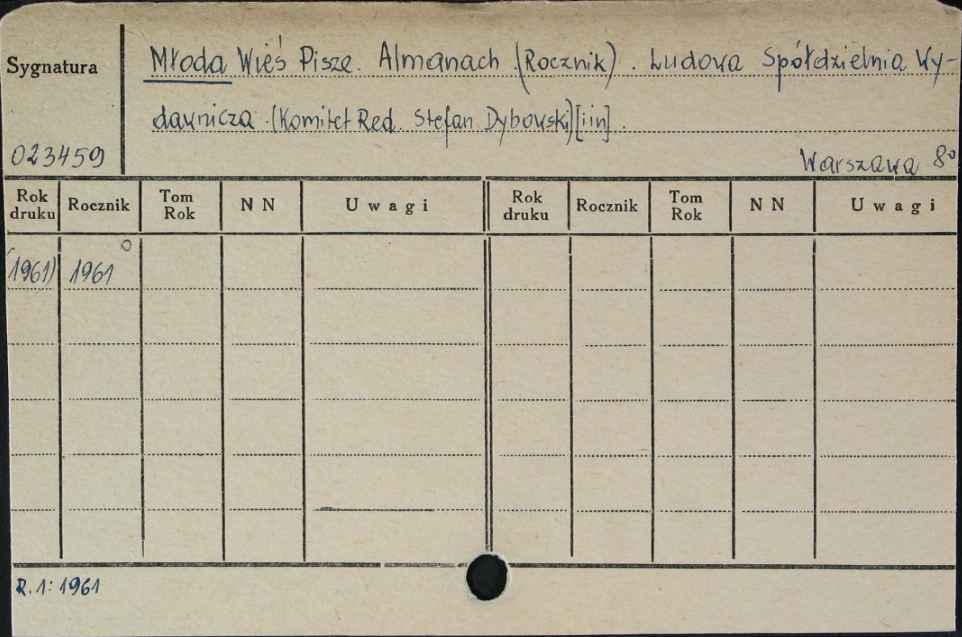 Sygnatura
Młoda Wieś Pisze. Almanach (Rocznik). Ludowa Spółdzielnia Wy-
dawnicza. (Komitet Red. Stefan Dybowski) [i in].
023459
Warszawa 8°
Rok druku Rocznik Tom Rok N N Uwagi Rok druku Rocznik Tom Rok N N Uwagi
(1961) 1961
R. 1: 1961